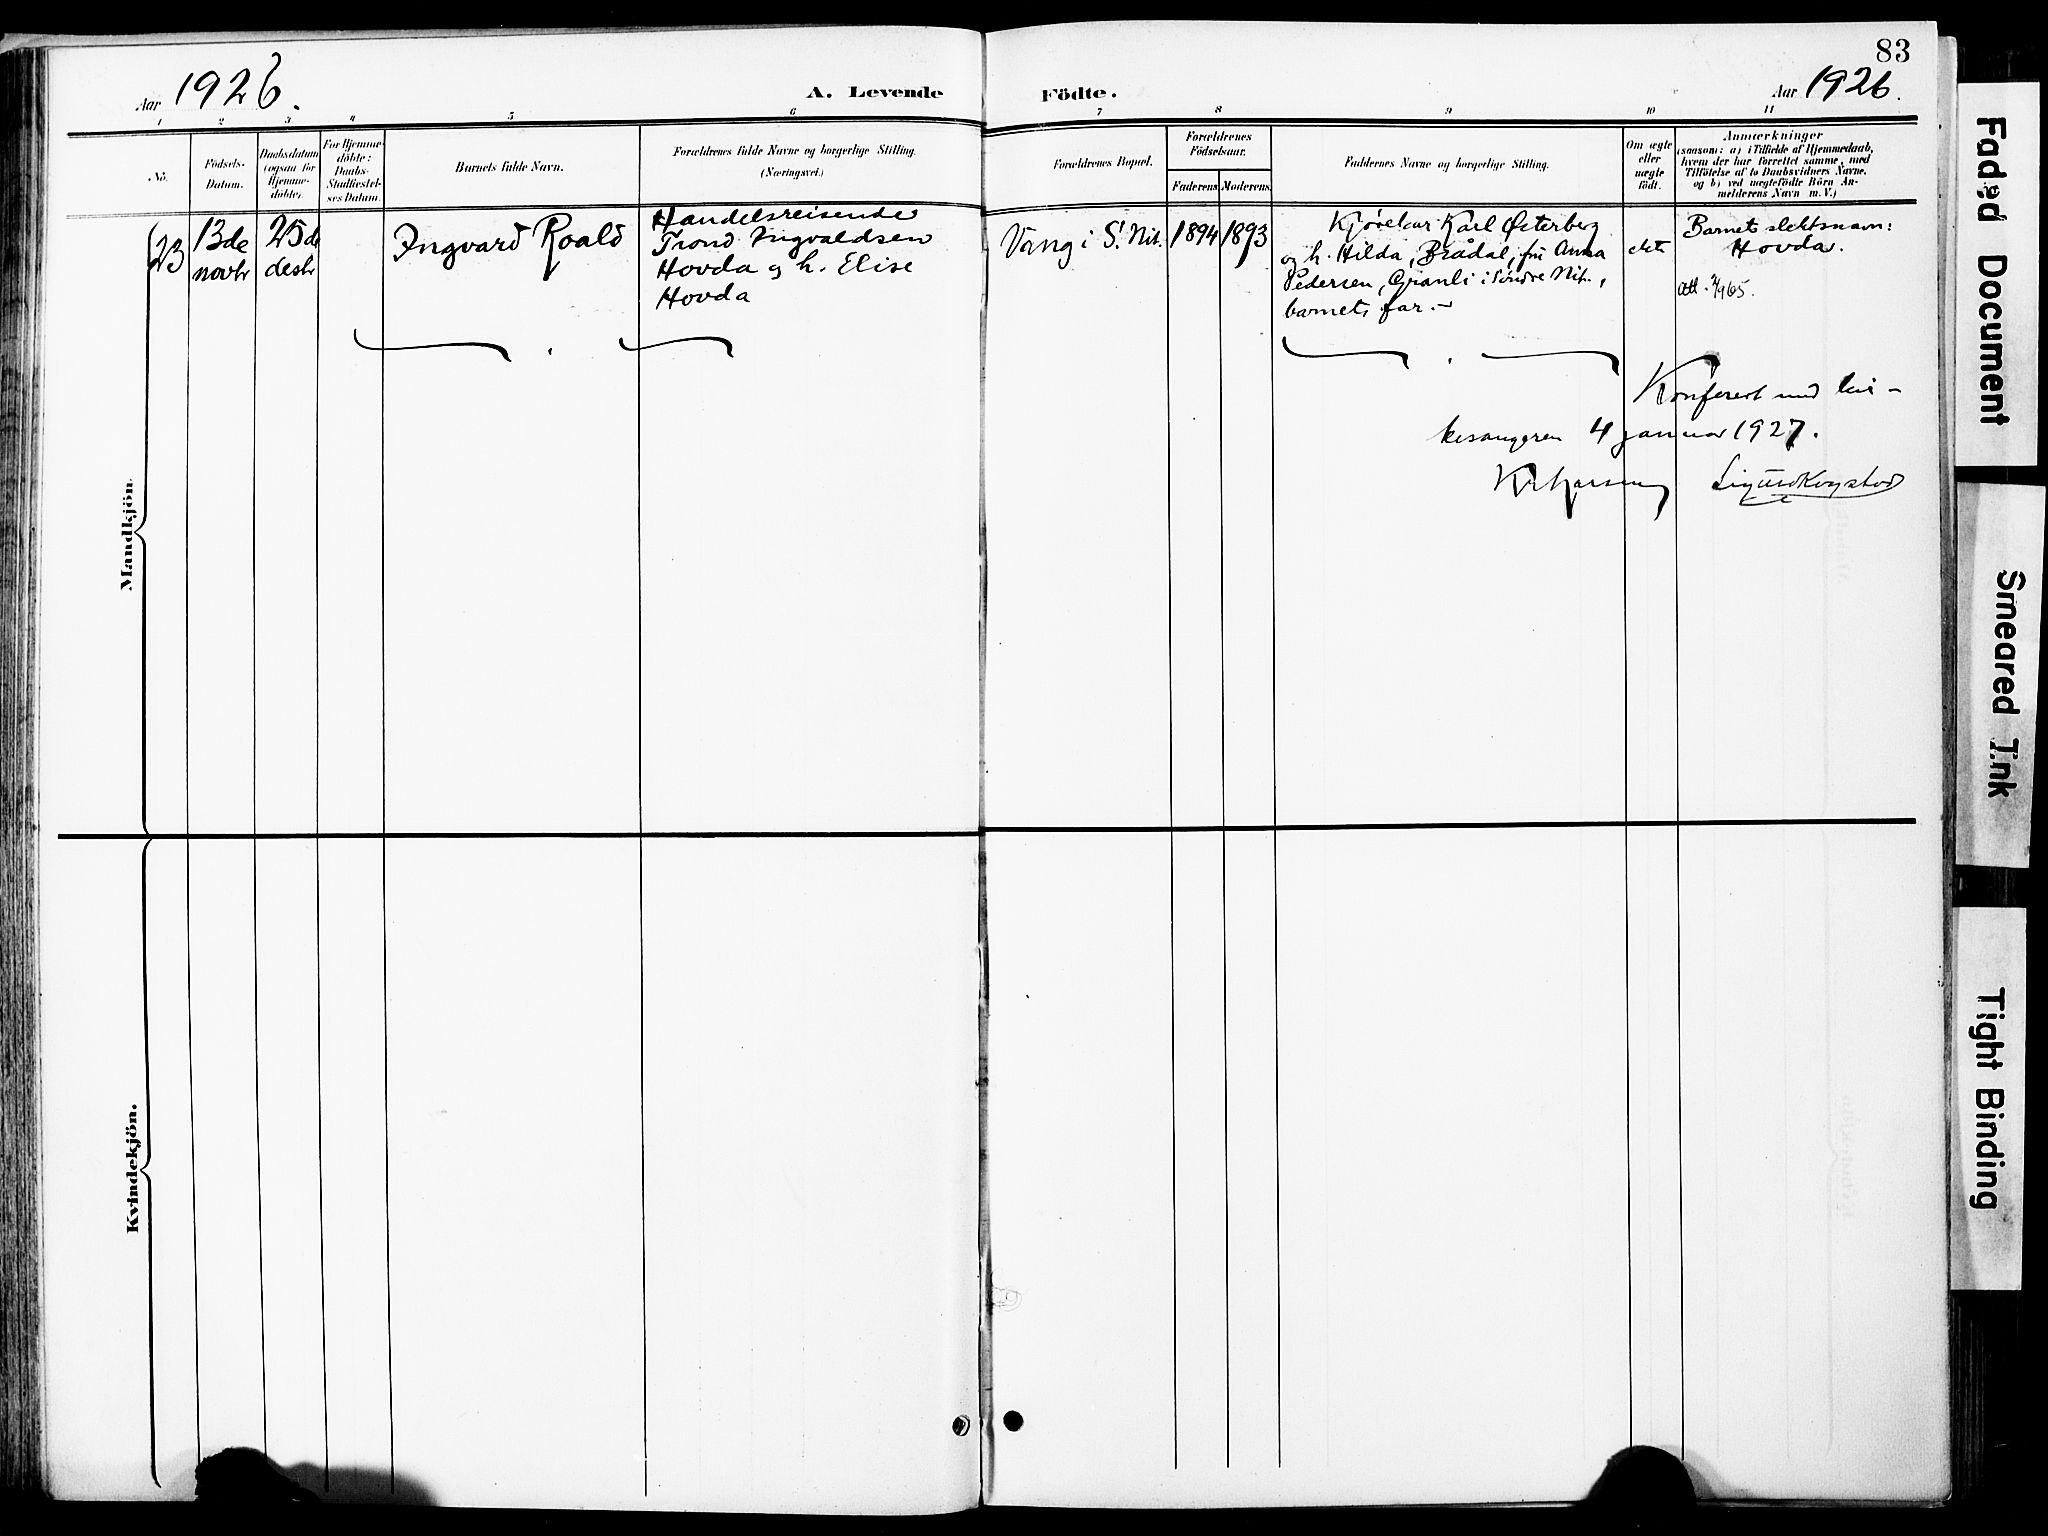 83
Aar 1926.
A. Levende Födte.
Aar 1926.
1 2 3 4 5 6 7 8 9 10 11
No.
Födsels-
Datum.
Daabsdatum
(ogsaa for
Hjemme-
döbte).
For Hjemme-
döbte:
Daabs-
Stadfæstel-
ses Datum.
Barnets fulde Navn.
Forældrenes fulde Navne og borgerlige Stilling.
(Næringsvei.)
Forældrenes Bopæl.
Forældrenes
Födselsaar.
Faderens.
Moderens.
Faddernes Navne og borgerlige Stilling.
Om ægte
eller
uægte
födt.
Anmærkninger
(saasom: a) i Tilfælde af Hjemmedaab,
hvem der har forrettet samme, med
Tilföielse af to Daabsvidners Navne.
og b) ved uægtefödte Börn An-
melderens Navn m. V.)
Mandkjön.
23
13de
novbr
25de
desbr
Ingvard Roald
Handelsreisende
Trond Ingvaldsen
Hovda og h. Elise
Hovda
Vang i S. Nit.
1894
1893
Kjørekar Karl Østerberg
og h. Hilda, Brådal, fru Anna
Pedersen, Granli i Søndre Nit.,
barnets far.
ekte
Barnets slektsnavn:
Hovda.
Att. 2/9 65.
Konferert med kir-
kesangeren 4 januar 1927.
Kvindekjön.
Faded Document
Smeared Ink
Tight Binding